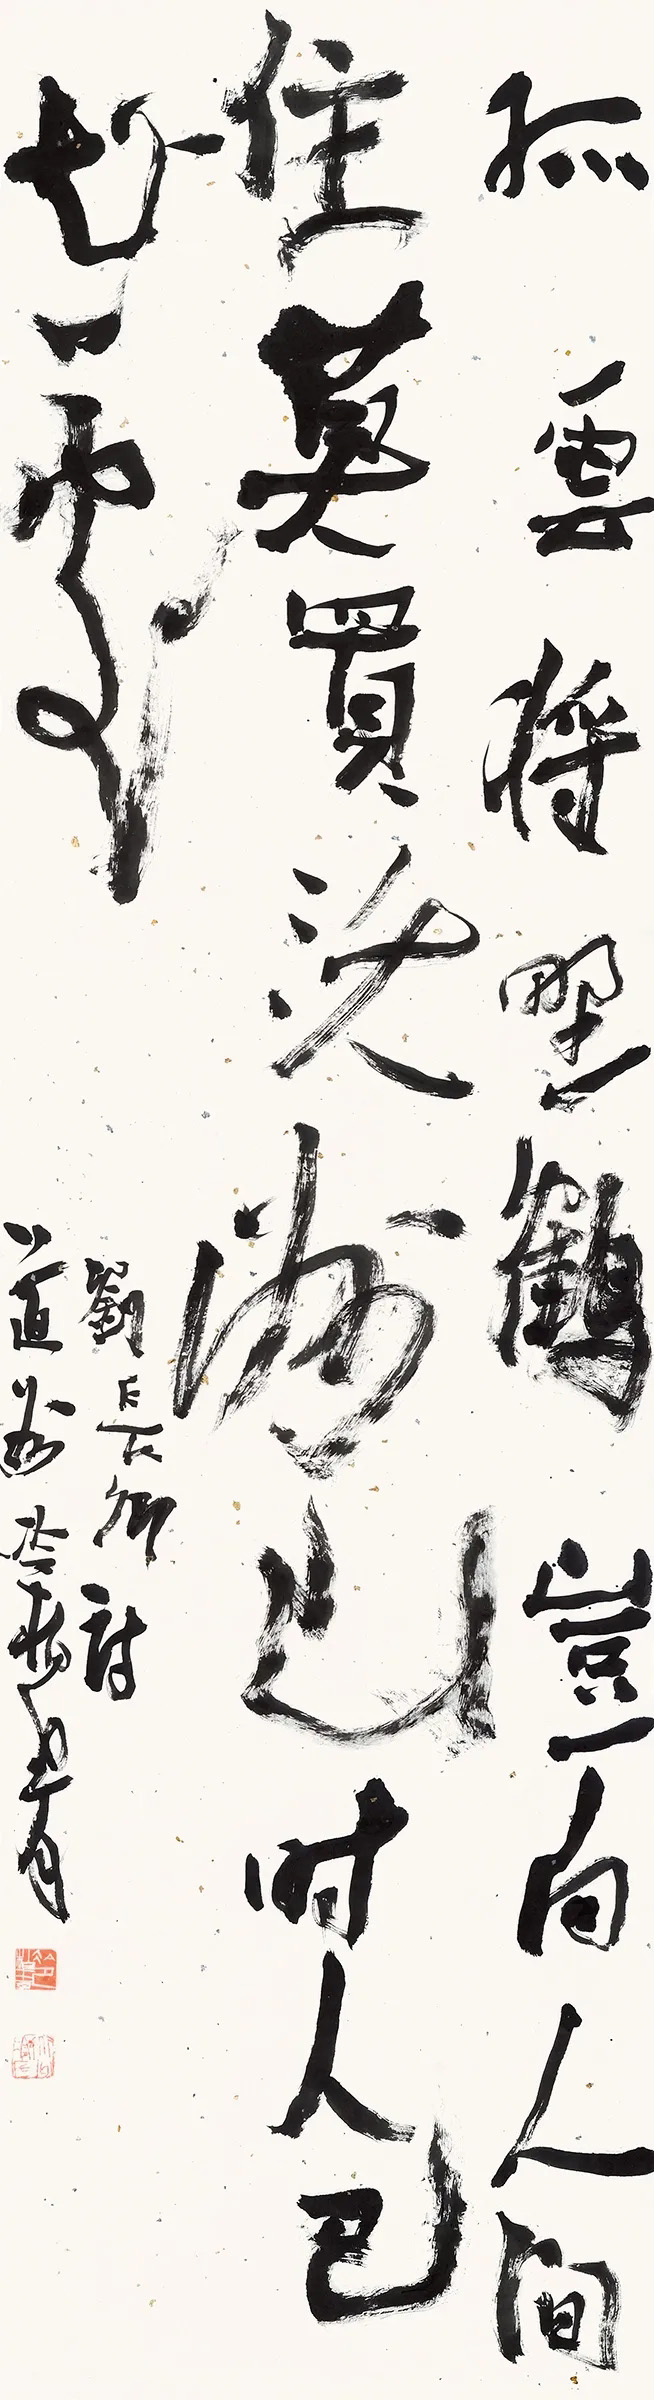 孤雲將野鶴豈向人間
住莫買沃洲山时人已
知處
劉長卿詩
道州